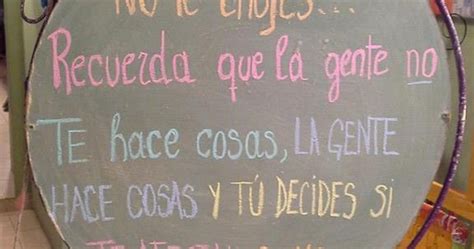 NO te enojes...
Recuerda que la gente no
TE hace cosas, LA GENTE
HACE COSAS Y TÚ DECIDES SI